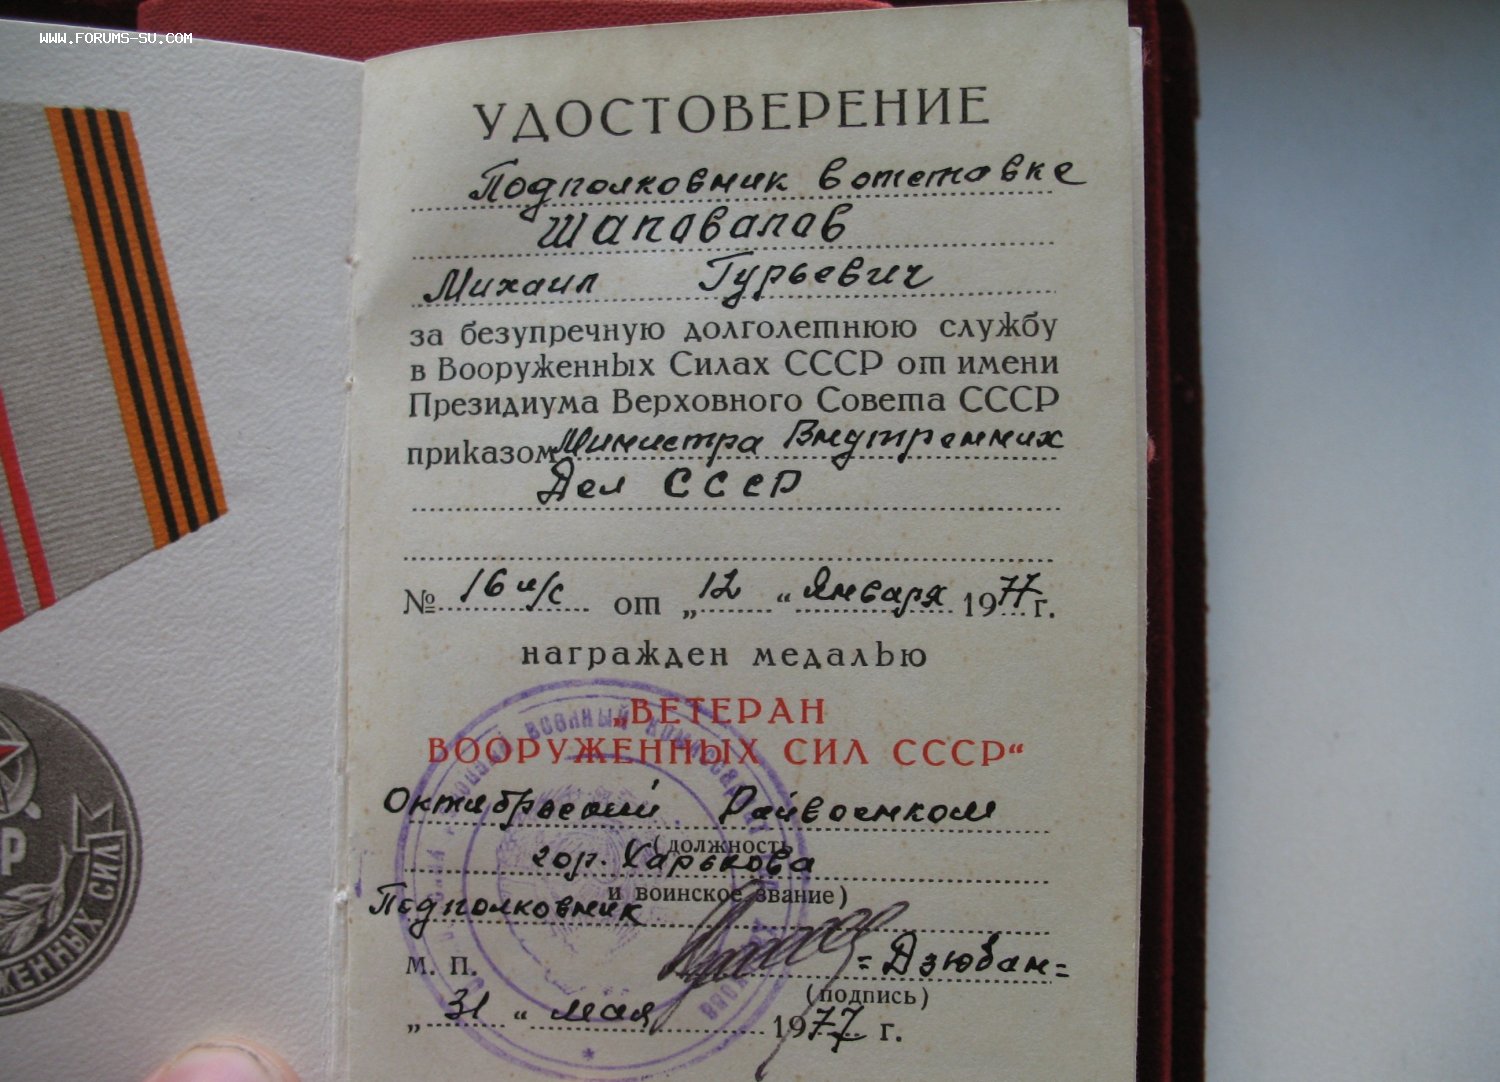 WWW.FORUMS-SU.COM
УДОСТОВЕРЕНИЕ
Подполковник в отставке
Шаповалов
Михаил Гурьевич
за безупречную долголетнюю службу
в Вооруженных Силах СССР от имени
Президиума Верховного Совета СССР
приказом Министра Внутренних
Дел СССР
№ 16 л/с от „12“ Января 1977 г.
награжден медалью
„ВЕТЕРАН
ВООРУЖЕННЫХ СИЛ СССР“
Октябрьский Райвоенком
(должность
гор. Харькова
и воинское звание)
Подполковник
М. П. =Дзюбан=
(подпись)
„31“ мая 1977 г.
Р
ЖЕННЫХ СИЛ
ВОЕННЫЙ КОМИССАРИАТ